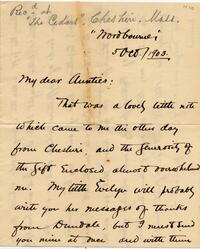 Rec'd at
"The Cedars" Cheshire, Mass.
"Woodbourne"
5 Oct./1903.
My dear Aunties:
That was a lovely little note
which came to me the other day
from Cheshire, and the generosity of
the gift enclosed almost overwhelmed
me. My little Evelyn will probably
write you her messages of thanks
from Dundale, but I must send
you mine at once and with them